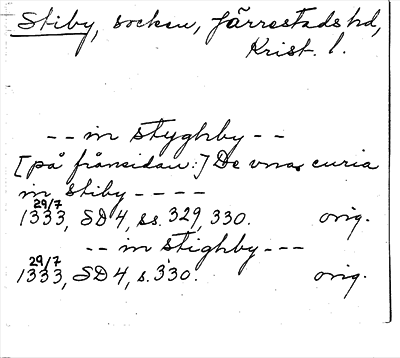 Stiby, socken, Järrestads hd,
Krist. l.
-- in styghby --
[på frånsidan:] De vna curia
in stiby ----
29/7
1333, SD 4, ss. 329, 330. orig.
-- in stighby ---
29/7
1333, SD 4, s. 330. orig.